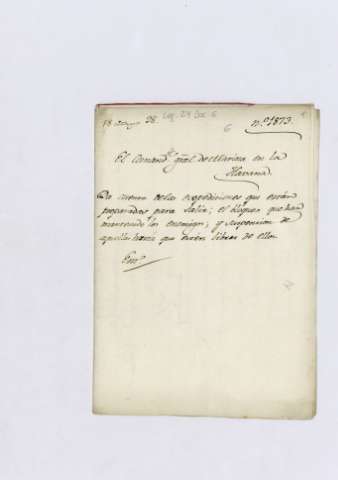 98. Leg. 24 Doc 6
6
n.º 1873.
El Comand.te gral de Marina en la
Havana
Da cuenta de las expediciones que están
preparadas para salir; el bloqueo que han
mantenido los enemigos; y suspension de
aquellas hasta que estén libres de ellos